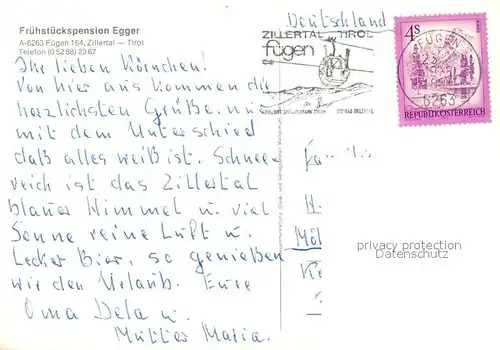 Frühstückspension Egger
A-6263 Fügen 164, Zillertal — Tirol
Telefon (0 52 88) 23 67
Deutschland
ZILLERTAL TIROL
fügen
FÜGEN
6263
4 S
REPUBLIK ÖSTERREICH
Ihr lieben Körnchen!
Von hier aus kommen die
herzlichsten Grüße, nur
mit dem Unterschied
daß alles weiß ist. Schnee
reich ist das Zillertal
blauer Himmel u. viel
Sonne reine Luft u.
Lecker Bier, so genießen
wir den Urlaub. Eure
Oma Dela u.
Mutter Maria.
privacy protection
Datenschutz